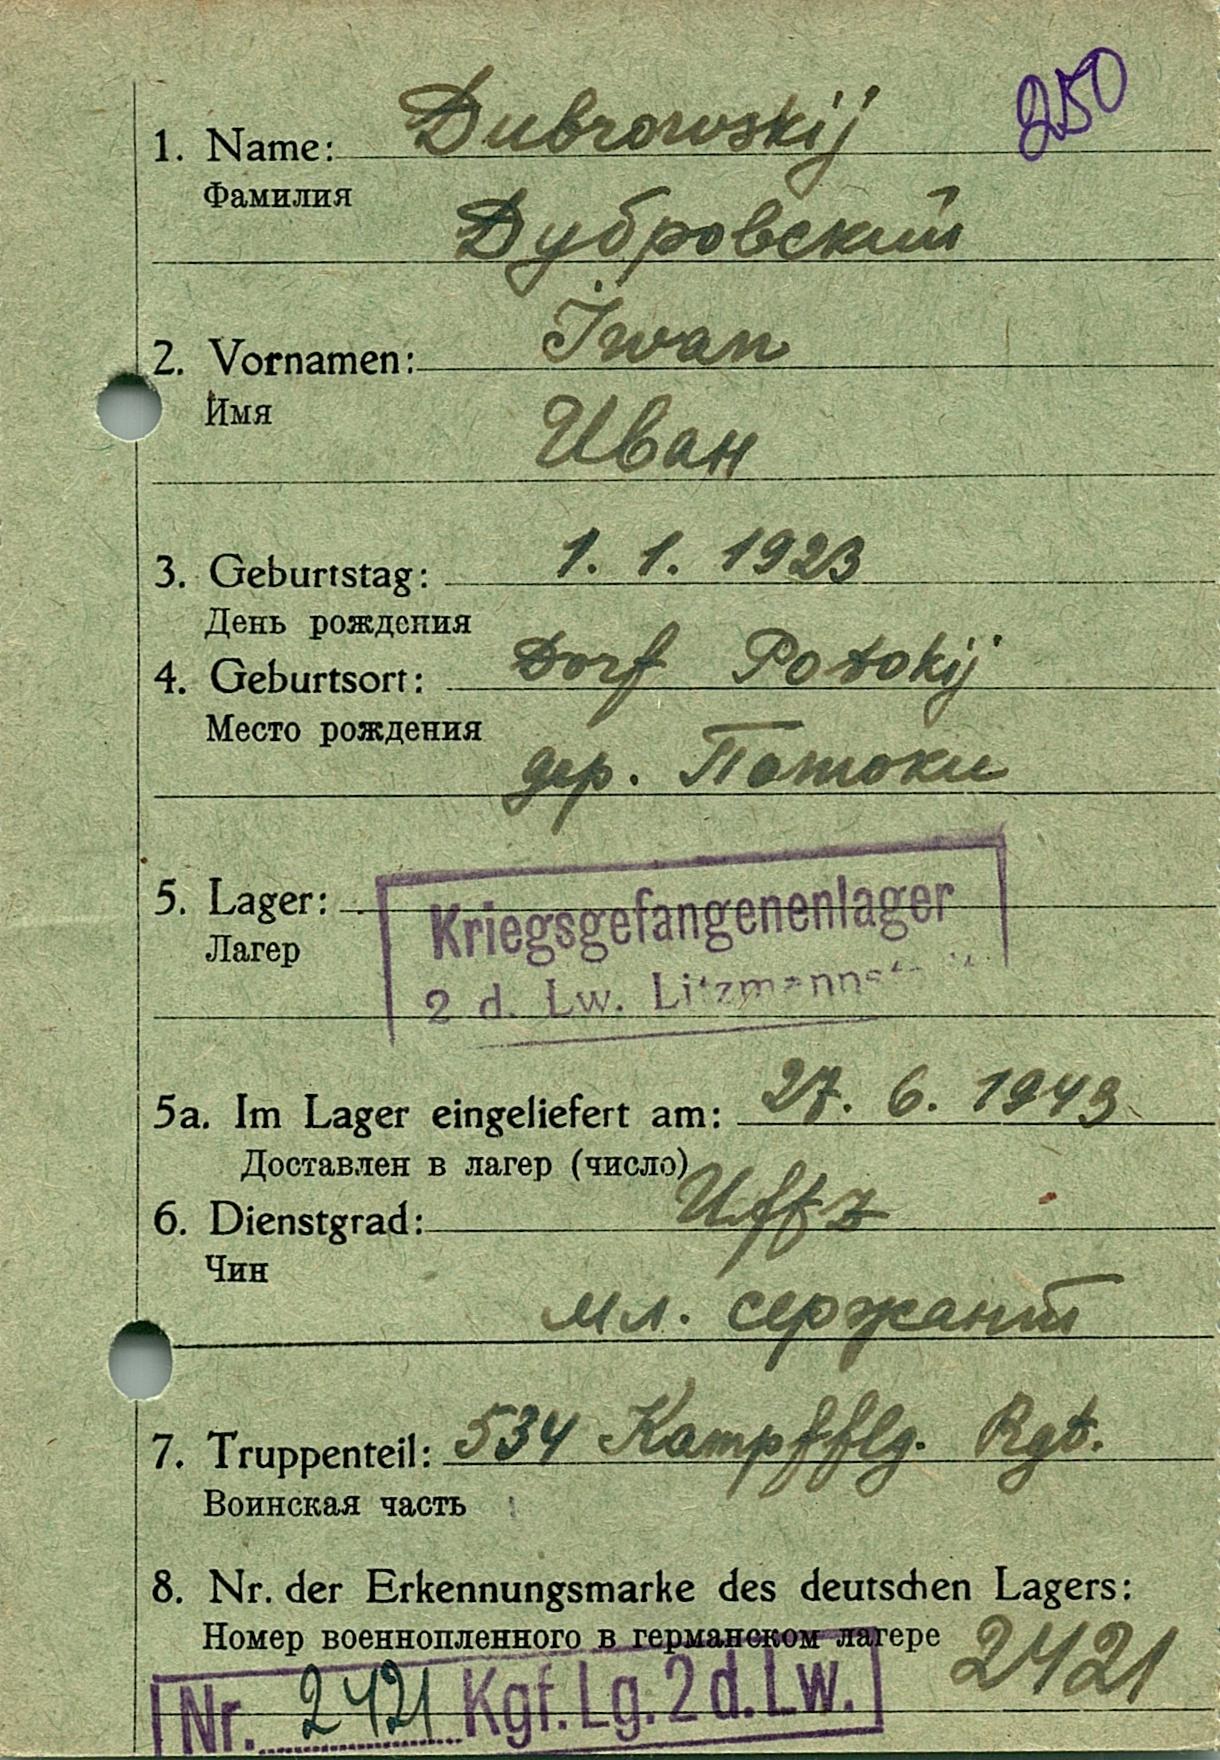 250
1. Name: Dubrowskij
Фамилия
Дубровский
2. Vornamen: Iwan
Имя
Иван
3. Geburtstag: 1. 1. 1923
День рождения
4. Geburtsort: Dorf Potokij
Место рождения
дер. Потоки
5. Lager: Kriegsgefangenenlager
Лагер
2 d. Lw. Litzmannstadt
5a. Im Lager eingeliefert am: 27. 6. 1943
Доставлен в лагер (число)
6. Dienstgrad: Uffz
Чин
мл. сержант
7. Truppenteil: 534 Kampfflg. Rgt.
Воинская часть
8. Nr. der Erkennungsmarke des deutschen Lagers:
Номер военнопленного в германском лагере 2421
Nr. 2421 Kgf. Lg. 2 d. Lw.